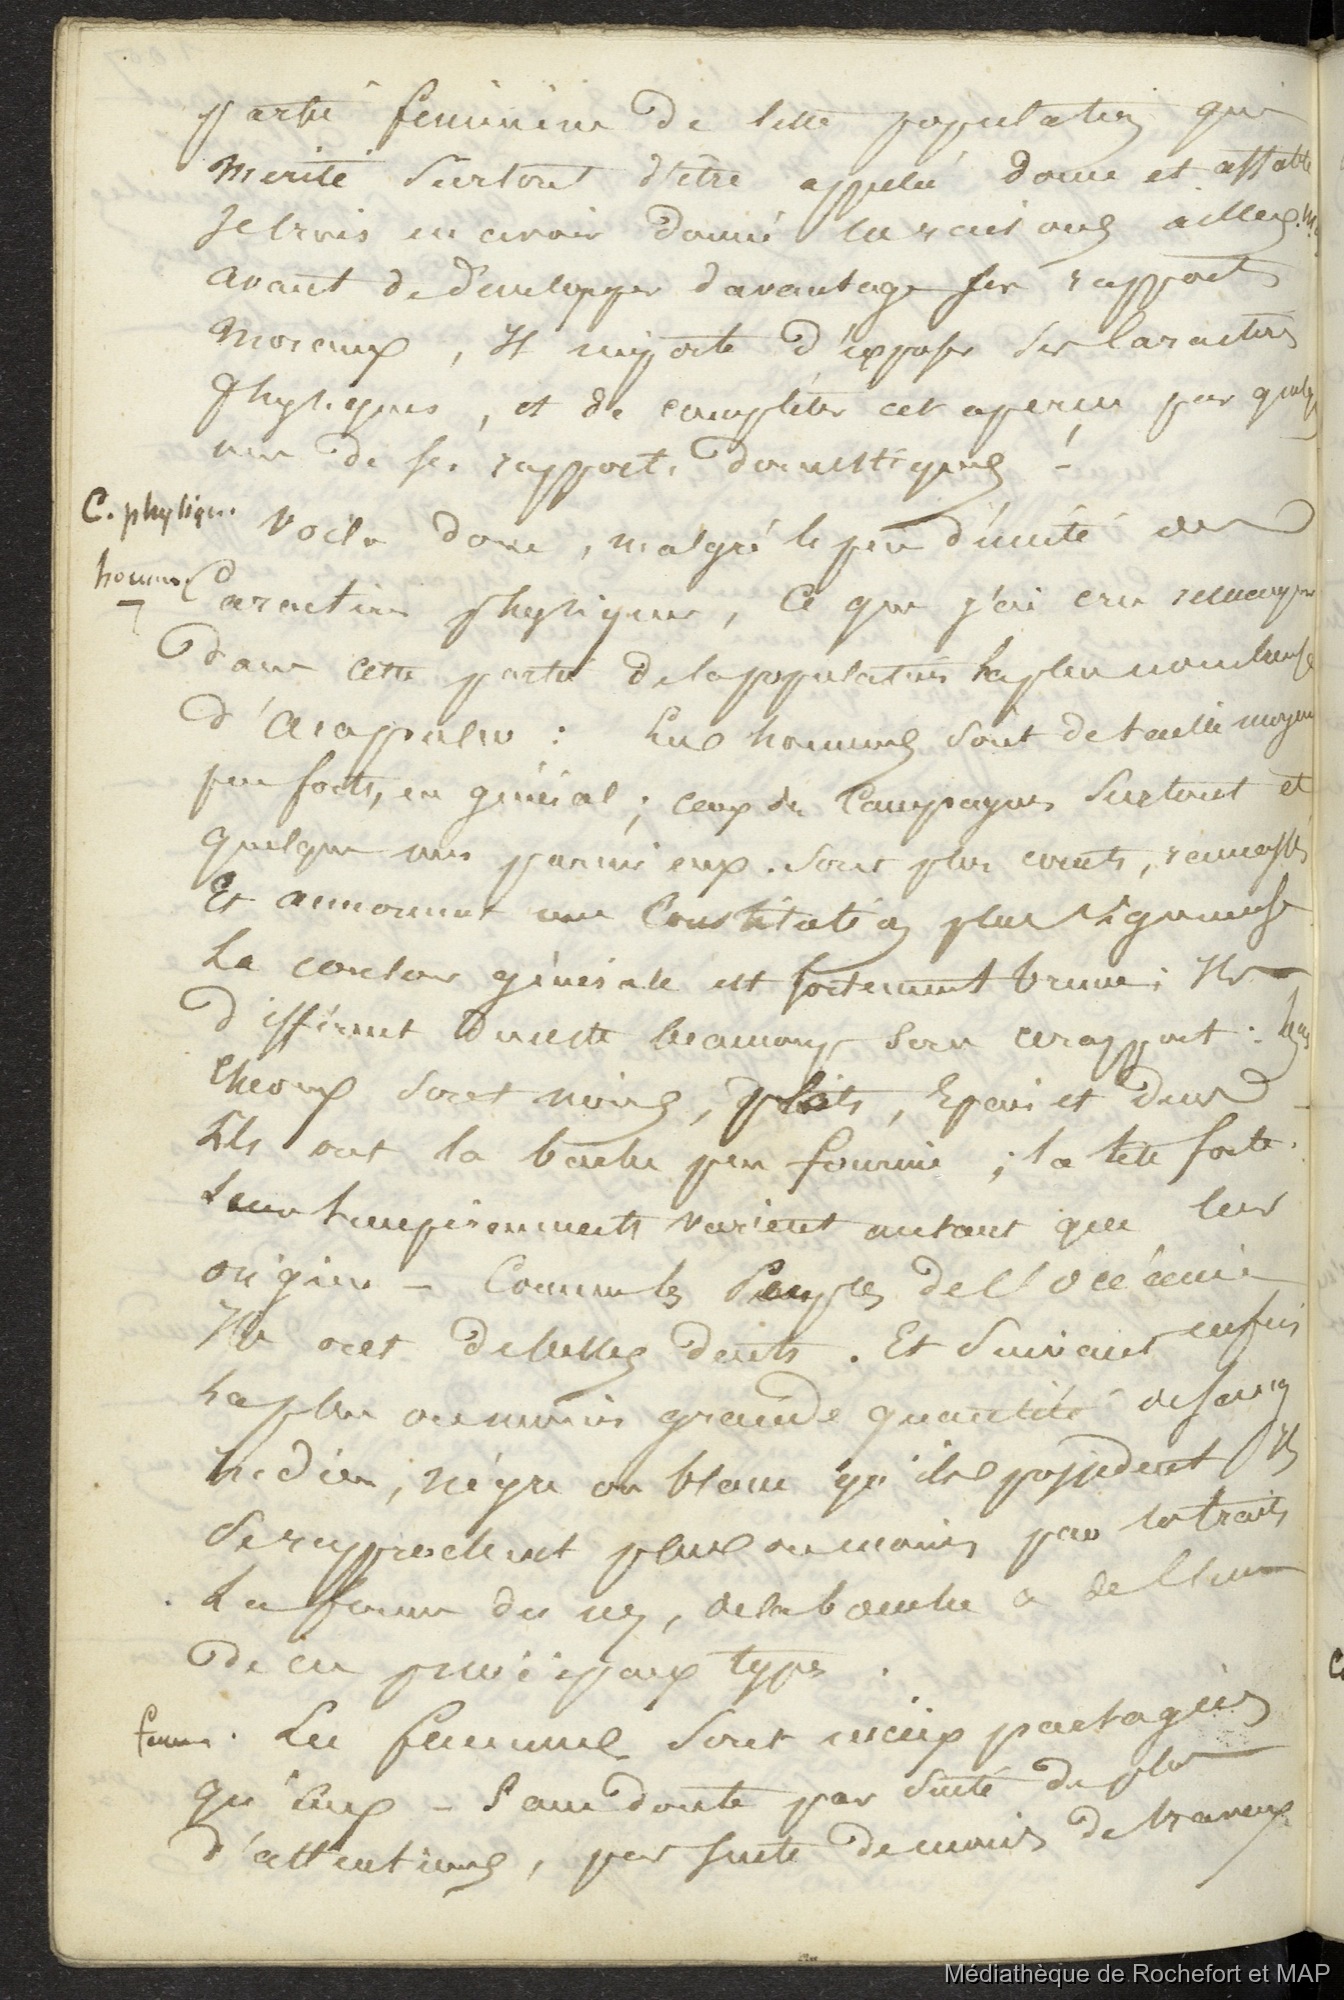 partie feminine de cette population qui
mérite surtout d'être appelée douce et affable
Je crois en avoir donné les raisons ailleurs. Mais
avant de développer davantage ses rapports
moraux, Il importe d'exposer ses Caractères
Physiques, et de compléter cet aperçu par quelques
uns de ses rapports domestiques –
C. physiques. Voila donc, malgré le peu d'unité des
hommes Caractères physiques, Ce que j'ai cru remarquer
dans cette partie de la population la plus nombreuse
d'Acapulco : Les hommes sont de taille moyenne
peu forts, en général ; ceux des Campagnes surtout et
quelques uns parmi eux. sont plus courts, ramassés
Et annoncent une Constitution plus vigoureuse
La couleur générale est fortement brune ; Ils
diffèrent du reste beaucoup sous ce rapport : leurs
Cheveux sont noirs, plats, Epais et durs –
Ils ont la barbe peu fournie ; la tête forte.
Leurs tempéraments varient autant que leur
origine – Comme les Peuples de l'Océanie
Ils ont de belles dents. Et suivant enfin
la plus ou moins grande quantité de sang
indien, nègre ou blanc qu'ils possèdent Ils
se rapprochent plus ou moins par les traits
La forme du nez, de la bouche a de l'un
de ces principaux types.
femmes. Les femmes sont mieux partagées
qu'eux – Sans doute par suite de plus
d'attentions, par suite de moins de travaux
Médiathèque de Rochefort et MAP